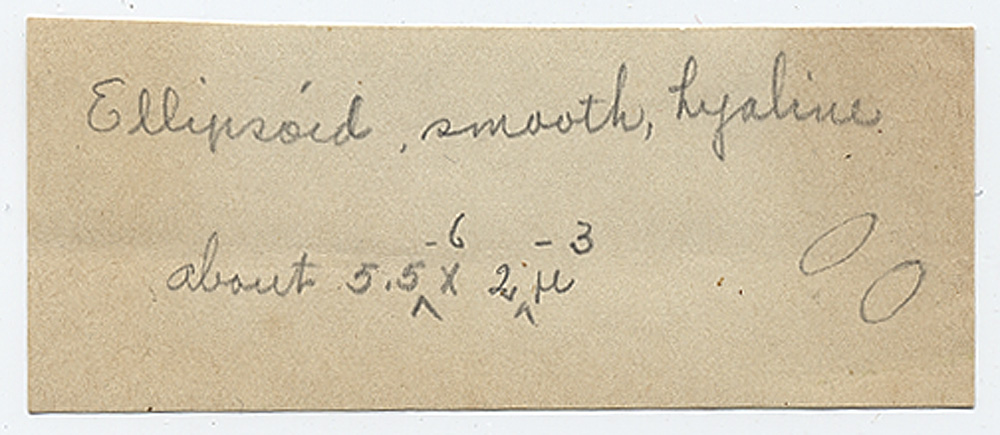 Ellipsóid, smooth, hyaline.
about 5.5-6 x 2-3 µ